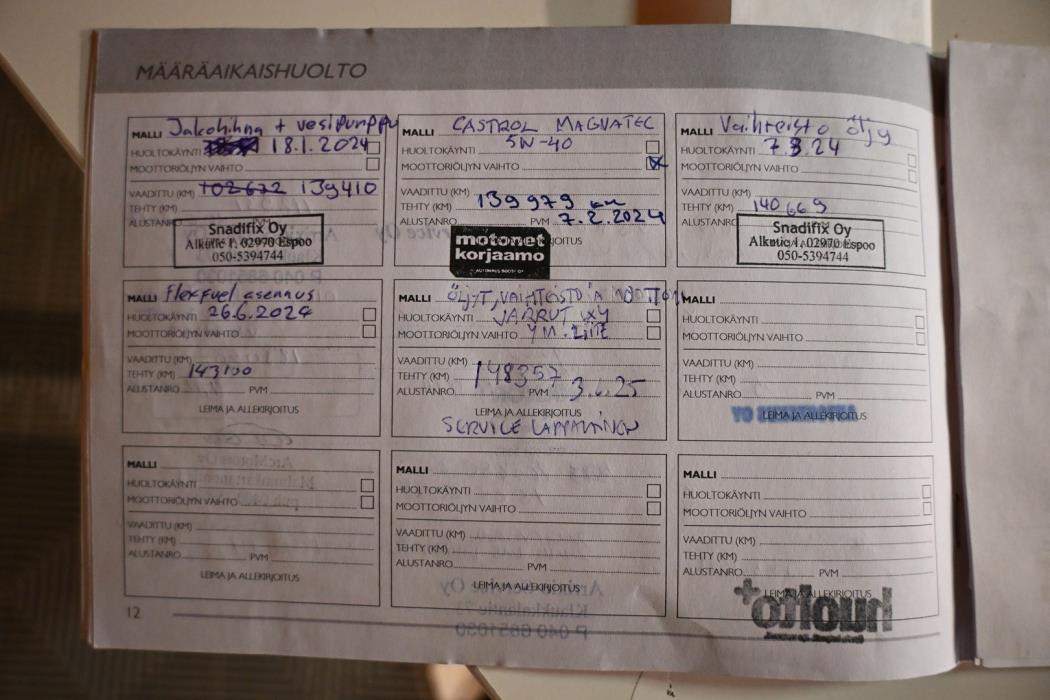 MÄÄRÄAIKAISHUOLTO
MALLI Jakohihna + vesipumppu
HUOLTOKÄYNTI 18.1.2024
MOOTTORIÖLJYN VAIHTO
VAADITTU (KM) 102672 139410
TEHTY (KM)
ALUSTANRO PVM
Snadifix Oy
Alkutie 1, 02970 Espoo
050-5394744
MALLI CASTROL MAGNATEC
HUOLTOKÄYNTI 5W-40
MOOTTORIÖLJYN VAIHTO
VAADITTU (KM)
TEHTY (KM) 139979 km
ALUSTANRO PVM 7.2.2024
motonet
korjaamo
MALLI Vaihteisto öljy
HUOLTOKÄYNTI 7.3.24
MOOTTORIÖLJYN VAIHTO
VAADITTU (KM)
TEHTY (KM) 140669
ALUSTANRO
Snadifix Oy
Alkutie 1, 02970 Espoo
050-5394744
MALLI Flexfuel asennus
HUOLTOKÄYNTI 26.6.2024
MOOTTORIÖLJYN VAIHTO
VAADITTU (KM)
TEHTY (KM) 143100
ALUSTANRO PVM
LEIMA JA ALLEKIRJOITUS
MALLI ÖLJYT, VAIHTEISTO JA MOOTTORI
HUOLTOKÄYNTI JARRUT
MOOTTORIÖLJYN VAIHTO YM. LIITE
VAADITTU (KM)
TEHTY (KM) 148357
ALUSTANRO PVM 3.6.25
LEIMA JA ALLEKIRJOITUS
SERVICE LAPPALAINEN
MALLI
HUOLTOKÄYNTI
MOOTTORIÖLJYN VAIHTO
VAADITTU (KM)
TEHTY (KM)
ALUSTANRO PVM
LEIMA JA ALLEKIRJOITUS
MALLI
HUOLTOKÄYNTI
MOOTTORIÖLJYN VAIHTO
VAADITTU (KM)
TEHTY (KM)
ALUSTANRO PVM
LEIMA JA ALLEKIRJOITUS
MALLI
HUOLTOKÄYNTI
MOOTTORIÖLJYN VAIHTO
VAADITTU (KM)
TEHTY (KM)
ALUSTANRO PVM
LEIMA JA ALLEKIRJOITUS
MALLI
HUOLTOKÄYNTI
MOOTTORIÖLJYN VAIHTO
VAADITTU (KM)
TEHTY (KM)
ALUSTANRO PVM
LEIMA JA ALLEKIRJOITUS
huolto+
12